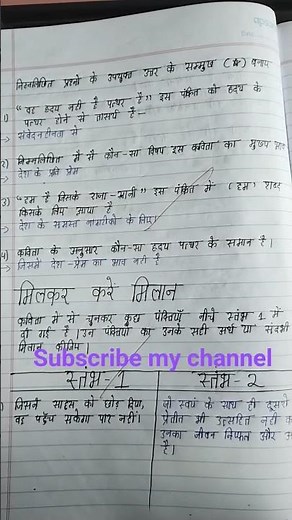 निम्नलिखित प्रश्नों के उपयुक्त उत्तर के सम्मुख (☆) बनाए
1) "वह हृदय नहीं है पत्थर है" इस पंक्ति को हृदय के
पत्थर होने से तात्पर्य है—
→ संवेदनहीनता से
2) निम्नलिखित में से कौन-सा विषय इस कविता का मुख्य
→ देश के प्रति प्रेम
3) "हम हैं जिसके राजा-रानी" इस पंक्ति में (हम) शब्द
किसके लिए आया है
→ देश के समस्त नागरिकों के लिए।
4) कविता के अनुसार कौन-सा हृदय पत्थर के समान है।
→ जिसमें देश-प्रेम का भाव नहीं है
मिलकर करे मिलान
कविता में से चुनकर कुछ पंक्तियाँ नीचे स्तंभ 1 में
दी गई है। उन पंक्तियों का उनके सही अर्थ या संदर्भ
मिलान कीजिए।
Subscribe my channel
स्तंभ-1 स्तंभ-2
जिसने साहस को छोड़ दिया, जो स्वयं के साथ ही दूसरों
वह पहुँच सकेगा पार नहीं। प्रेरित भी उत्साहित नहीं
उनका जीवन निष्फल और
है।